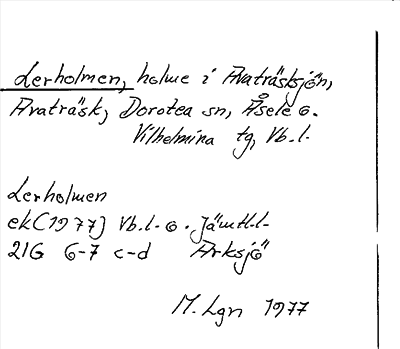 Lerholmen, holme i Avaträsksjön,
Avaträsk, Dorotea sn, Åsele o.
Vilhelmina tg, Vb.l.
Lerholmen
ek (1977) Vb.l. o. Jämtl.l.
21G 6-7 c-d Arksjö
M. Lgn 1977